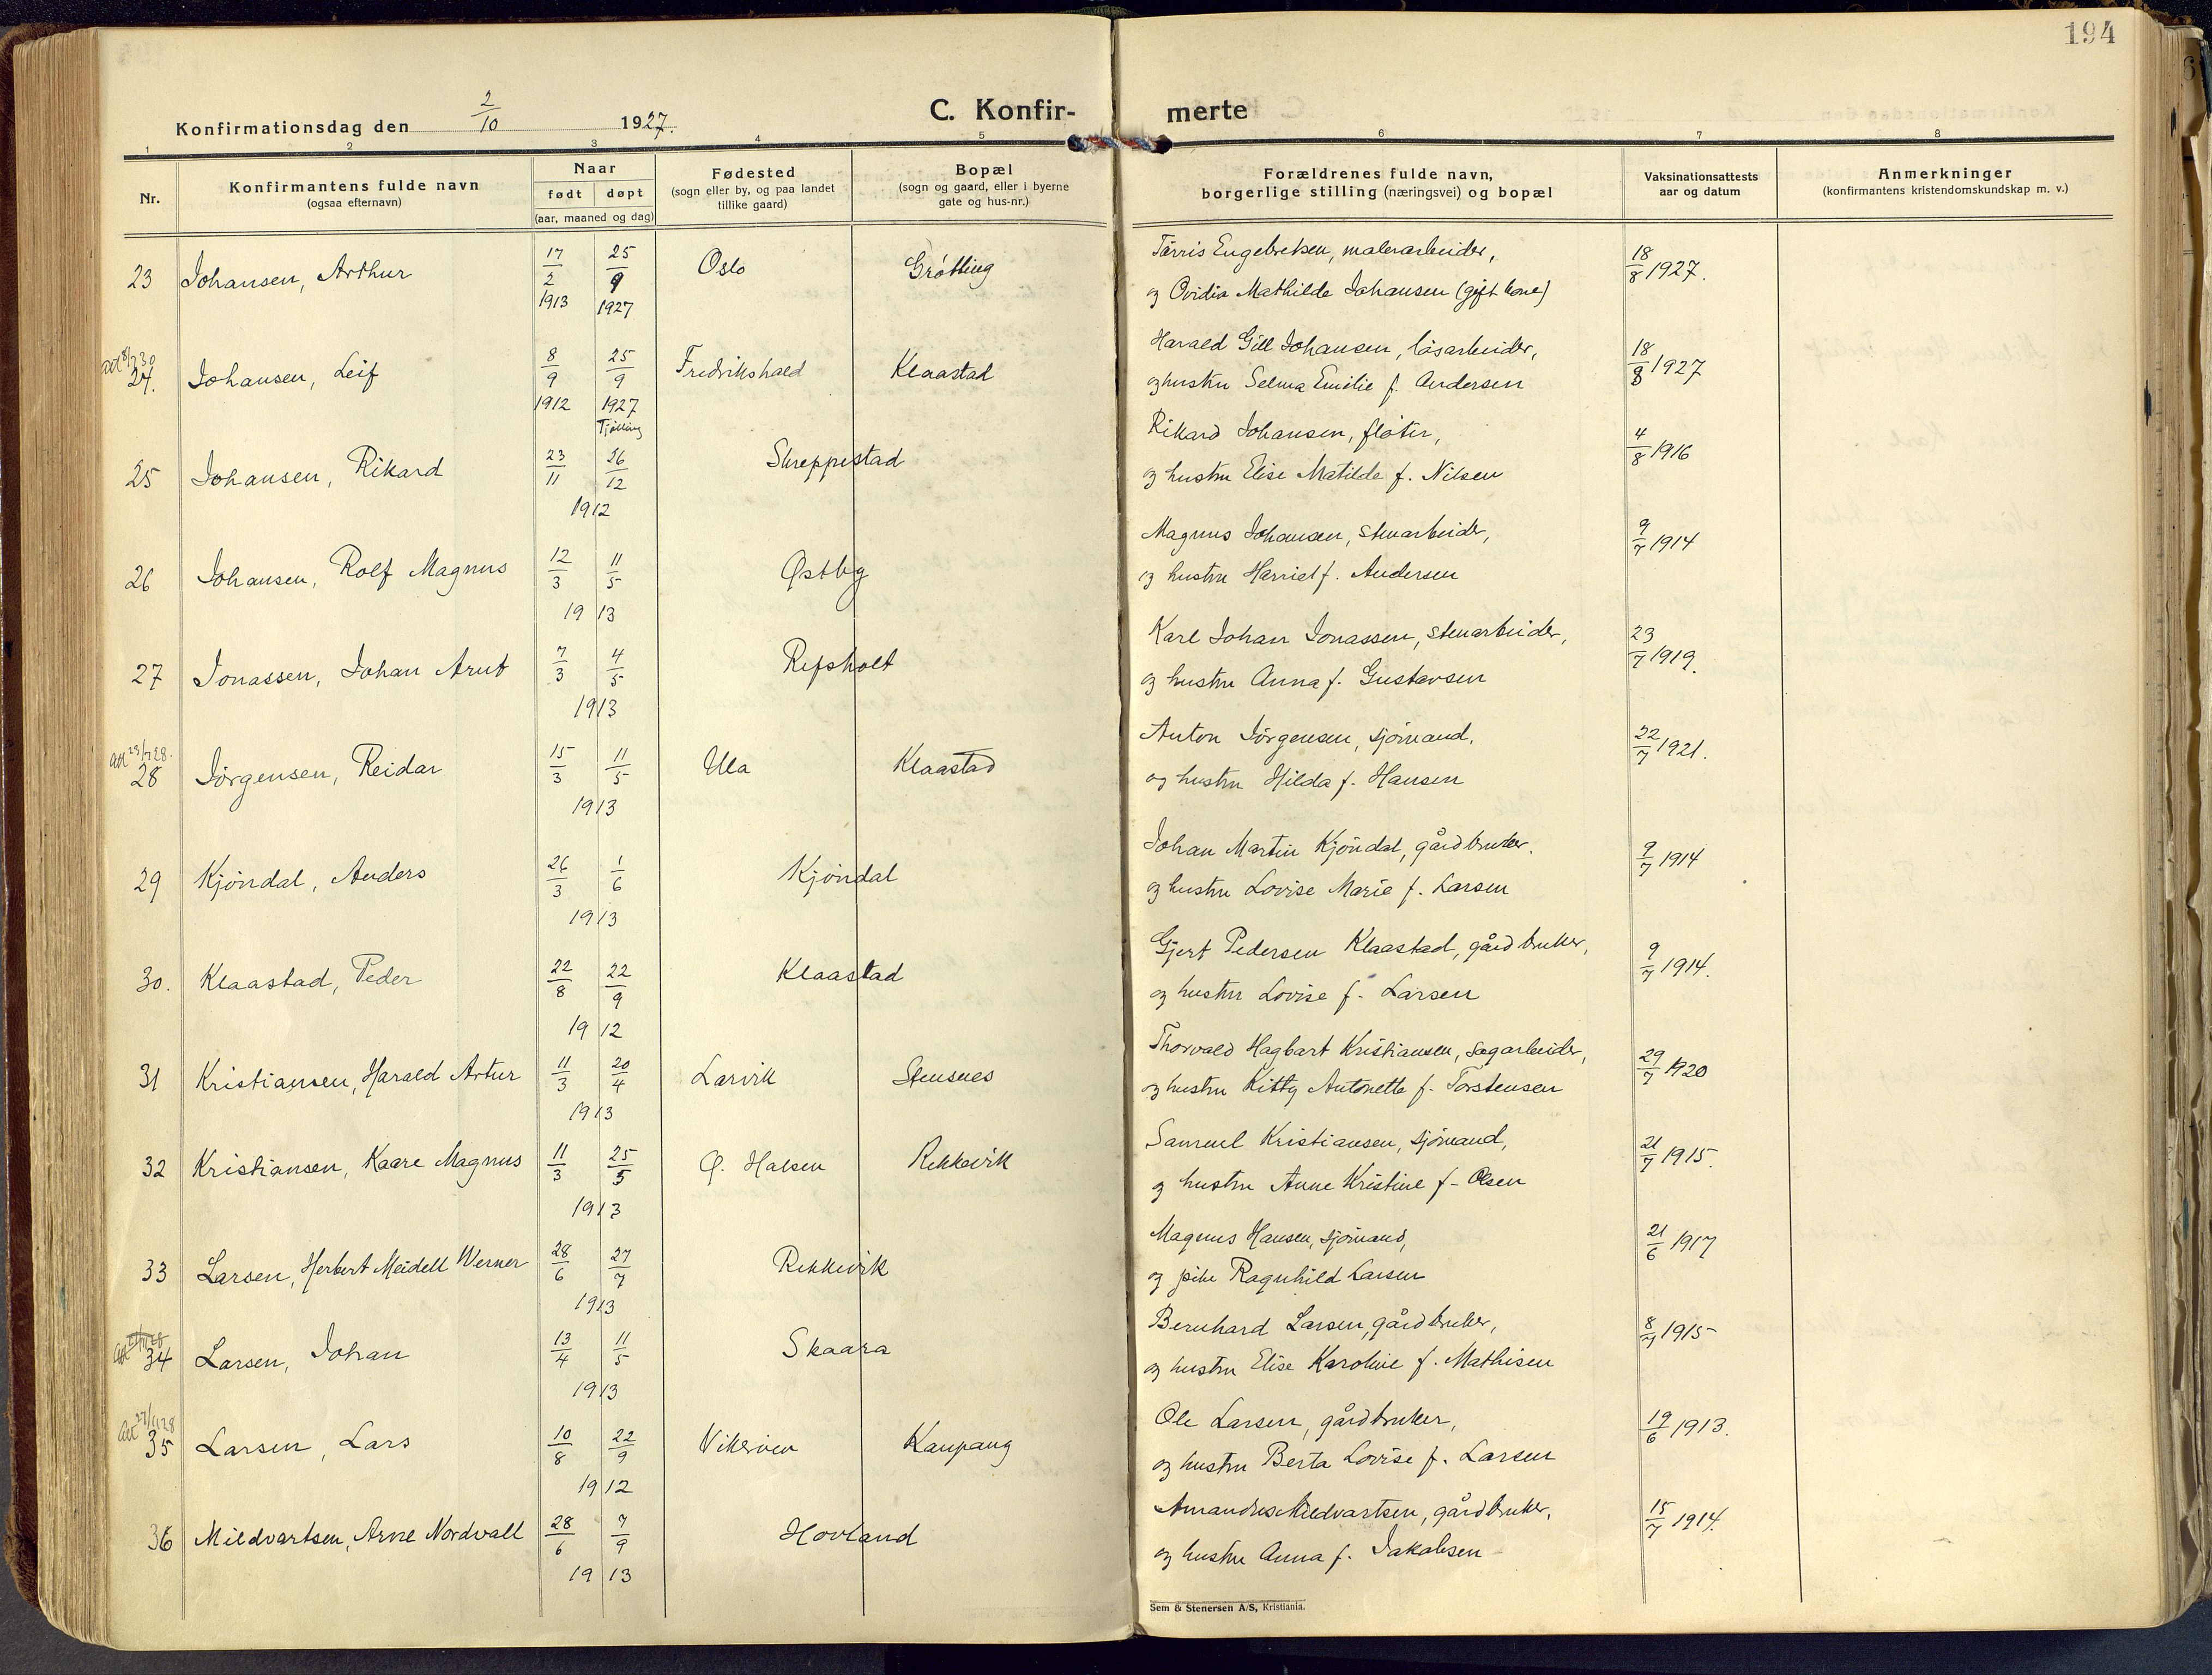 194
Konfirmationsdag den 2/10 1927.
C. Konfir-
merte
1 2 3 4 5 6 7 8
Nr.
Konfirmantens fulde navn
(ogsaa efternavn)
Naar
født døpt
(aar, maaned og dag)
Fødested
(sogn eller by, og paa landet
tillike gaard)
Bopæl
(sogn og gaard, eller i byerne
gate og hus-nr.)
Forældrenes fulde navn,
borgerlige stilling (næringsvei) og bopæl
Vaksinationsattests
aar og datum
Anmerkninger
(konfirmantens kristendomskundskap m. v.)
23 Johansen, Arthur 17/2 1913 25/9 1927 Oslo Grøtting
Engebretsen, malerarbeider, 18/8 1927.
og Ovidia Mathilde Johansen (gift kone)
24. Johansen, Leif 8/9 1912 25/9 1927 Tjølling Fredrikshald Klaastad
Harald Gill Johansen, løsarbeider, 18/8 1927
og hustru Selma Emilie f. Andersen
25 Johansen, Rikard 23/11 26/12 1912 Skreppestad
Rikard Johansen, fløter, 4/8 1916
og hustru Elise Matilde f. Nilsen
26 Johansen, Rolf Magnus 12/3 11/5 1913 Østby
Magnus Johansen, stenarbeider, 9/7 1914
og hustru Harriet f. Andersen
27 Jonassen, Johan Arnt 7/3 4/5 1913 Refsholt
Karl Johan Jonassen, stenarbeider, 23/7 1919.
og hustru Anna f. Gustavsen
28 Jørgensen, Reidar 15/3 11/5 1913 Ula Klaastad
Anton Jørgensen, sjømand, 22/7 1921.
og hustru Hilda f. Hansen
29 Kjøndal, Anders 26/3 1/6 1913 Kjøndal
Johan Martin Kjøndal, gårdbruker. 9/7 1914
og hustru Lovise Marie f. Larsen
30. Klaastad, Peder 22/8 22/9 1912 Klaastad
Gjert Pedersen Klaastad, gårdbruker, 9/7 1914.
og hustru Lovise f. Larsen
31 Kristiansen, Harald Artur 11/3 20/4 1913 Larvik Stensnes
Thorvald Hagbart Kristiansen, sagarbeider, 29/7 1920
og hustru Kitty Antonette f. Torstensen
32 Kristiansen, Kaare Magnus 11/3 25/5 1913 Ø. Halsen Rekkevik
Samuel Kristiansen, sjømand, 21/7 1915.
og hustru Anne Kristine f. Olsen
33 Larsen, Herbert Meidell Werner 28/6 27/7 1913 Rekkevik
Magnus Hansen, sjømand, 21/6 1917
og pike Ragnhild Larsen
34 Larsen, Johan 13/4 11/5 1913 Skaara
Bernhard Larsen, gårdbruker, 8/7 1915
og hustru Elise Karoline f. Mathisen
35 Larsen, Lars 10/8 22/9 1912 Vikerøen Kaupang
Ole Larsen, gårdbruker, 19/6 1913.
og hustru Berta Lovise f. Larsen
36 Mildvartsen, Arne Nordvall 28/6 7/9 1913 Hovland
Amandus Mildvartsen, gårdbruker, 15/7 1914.
og hustru Anna f. Jakobsen
Sem & Stenersen A/S, Kristiania.